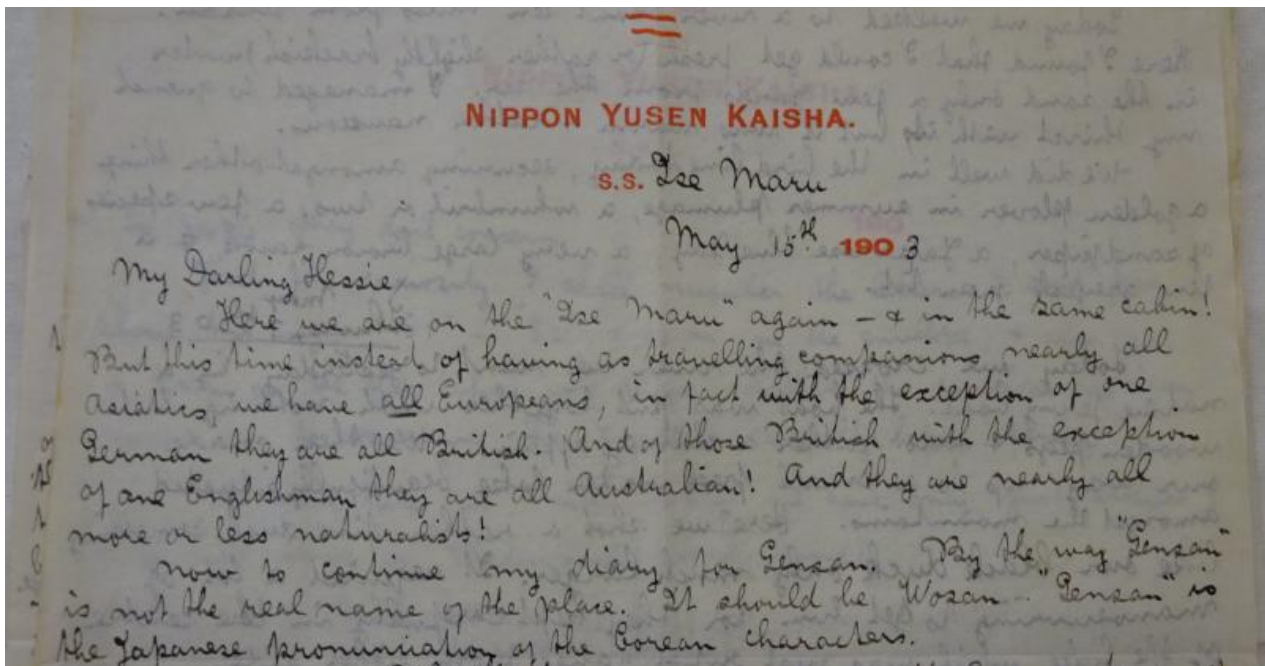 NIPPON YUSEN KAISHA.
S.S. Ise Maru
May 15th 1903
My Darling Hessie
Here we are on the "Ise Maru" again - & in the same cabin!
But this time instead of having as travelling companions nearly all
Asiatics we have all Europeans, in fact with the exception of one
German they are all British. And of those British with the exception
of one Englishman they are all Australian! And they are nearly all
more or less naturalists!
Now to continue my diary for Gensan. By the way "Gensan"
is not the real name of the place. It should be Wosan. "Gensan" is
the Japanese pronunciation of the Corean characters.